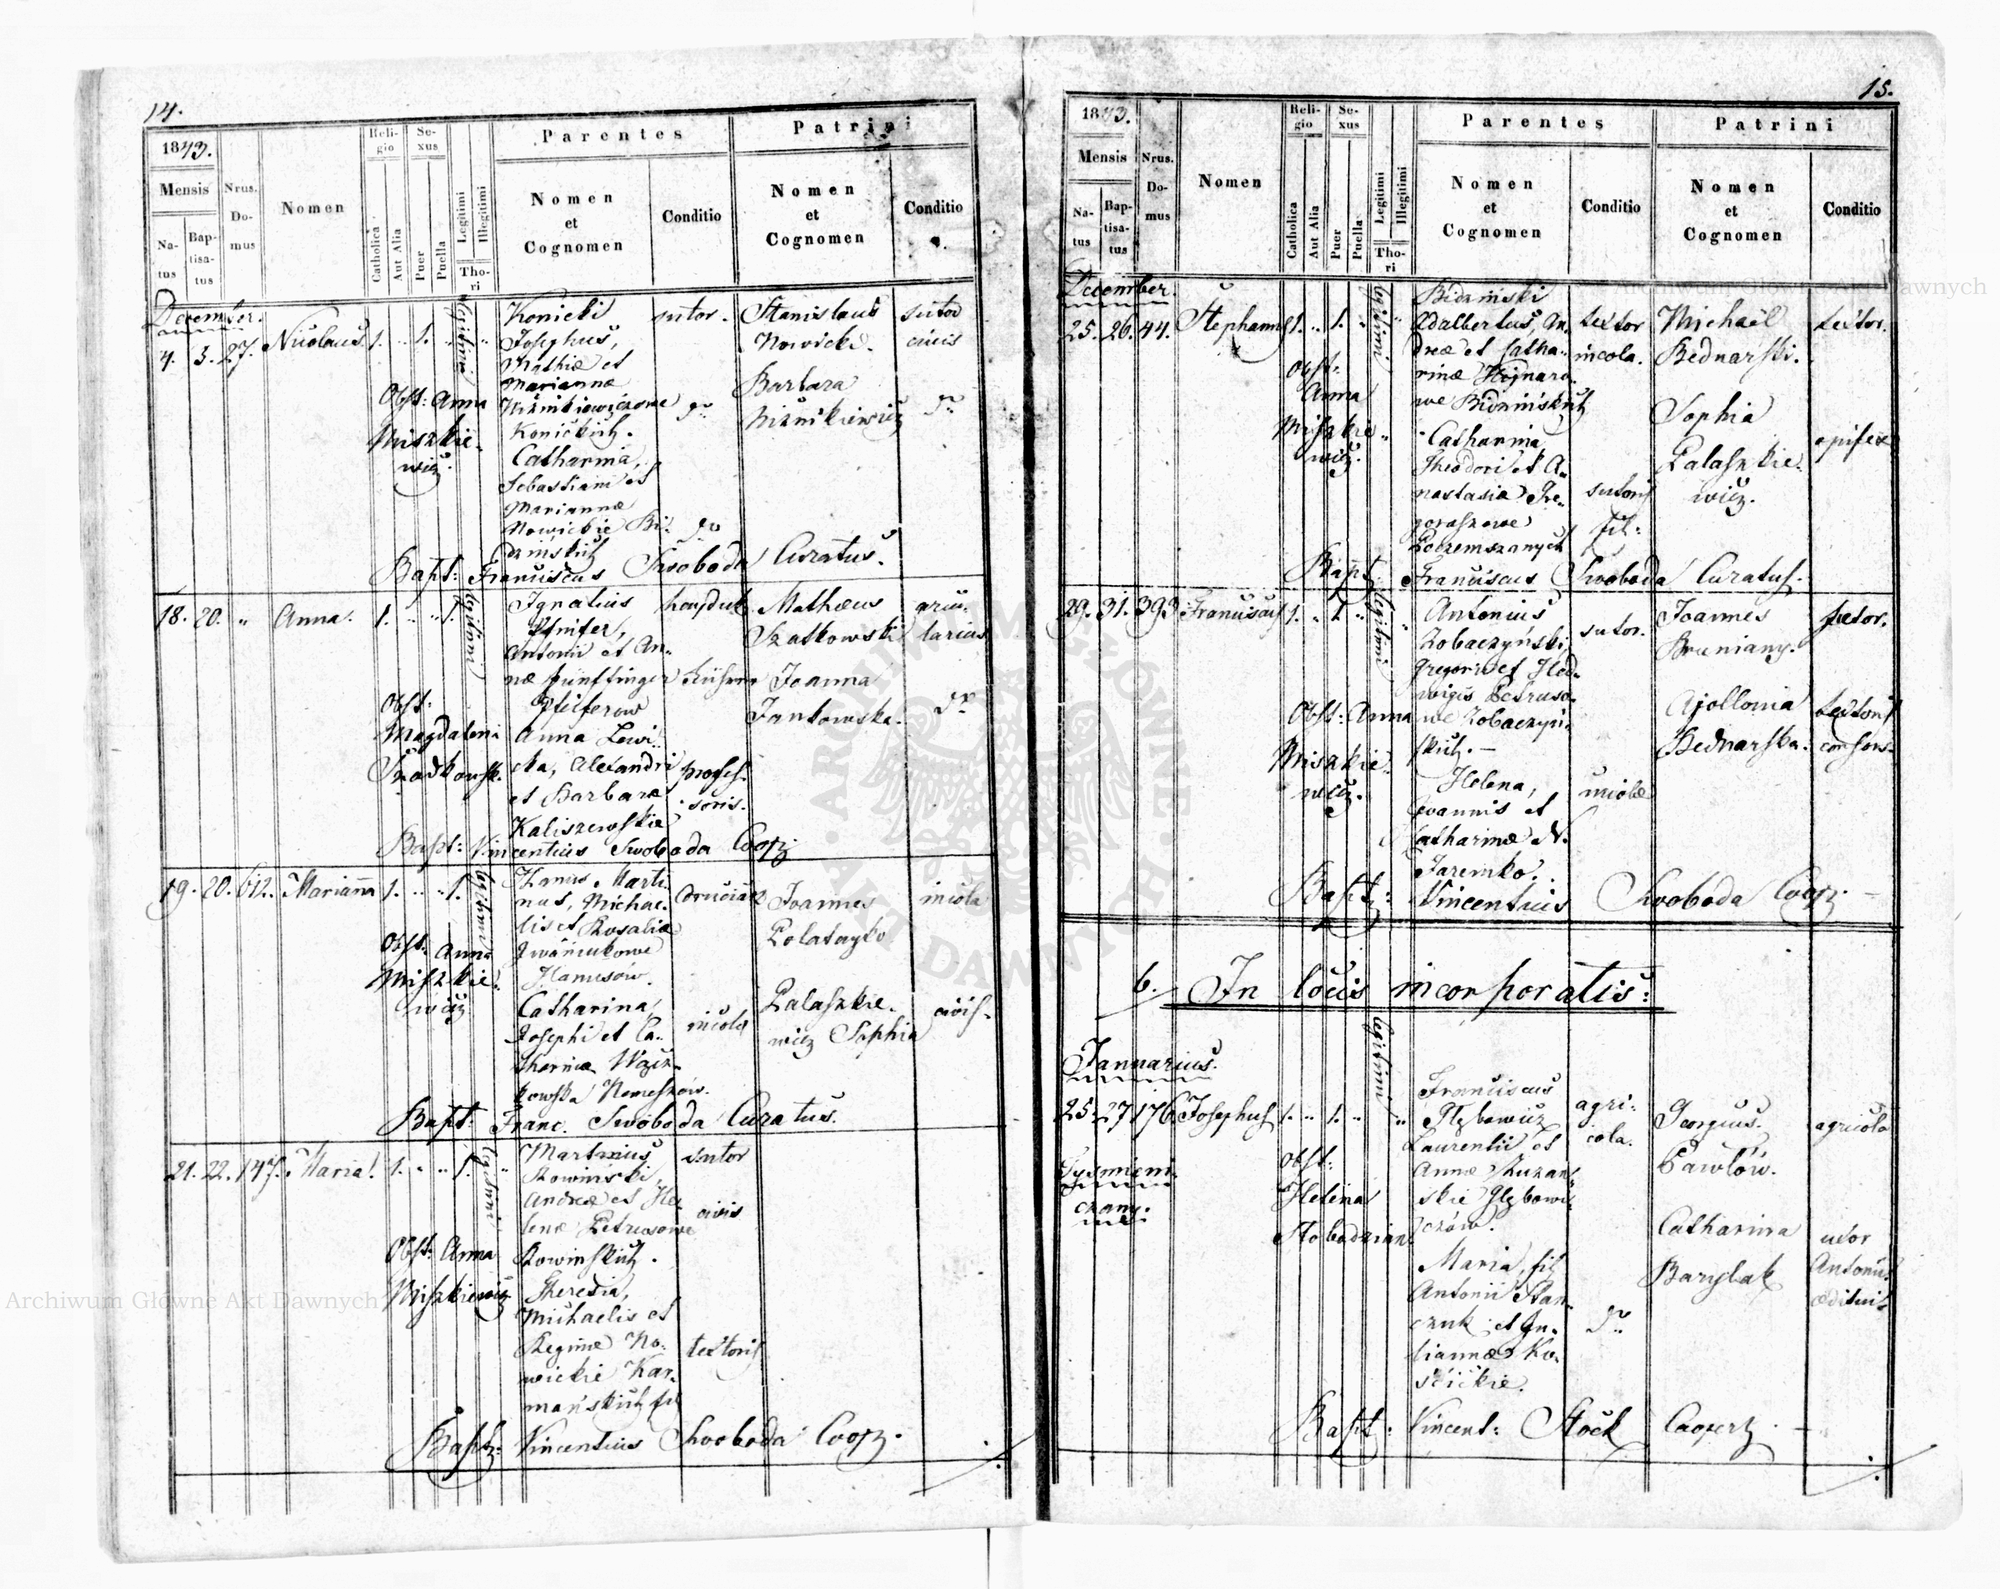 14.
1843.
Mensis
Na-
tus
Bap-
tisa-
tus
Nrus.
Do-
mus
Nomen
Reli-
gio
Catholica
Aut Alia
Se-
xus
Puer
Puella
Legitimi
Illegitimi
Tho-
ri
Parentes
Nomen
et
Cognomen
Conditio
Patrini
Nomen
et
Cognomen
Conditio
December.
4. 5. 27. Nicolaus. 1. " 1. " legitimi "
Konicki
Josephus,
Mathiæ et
Mariannæ
Konickich.
Catharina,
Sebastiani et
Mariannæ
Nowickie
sutor.
dto
dto
Stanislaus
Nowicki.
Barbara
sutor
civis
dto
Obst: Anna
Miszkie-
wicz.
Bapt: Franciscus Swoboda Curatus.
18. 20. " Anna. 1. " " 1. legitimi
Ignatius
Pfeifer,
Antonii et An-
næ
Pfeiferow
Anna Lewi-
cka, Alexandri
et Barbaræ
Kaliszewskie
hayduk
profes-
soris.
Matheus
Szatkowski
Joanna
Jantowska.
dto
Obst:
Magdalena
Bapt: Vincentius Swoboda Coop:
19. 20. 612. Marianna 1. " " 1. legitimi
Marti-
nus, Michae-
lis et Rosaliæ
Iwaniukowe
Catharina,
Josephi et Ca-
tharinæ
incola
Joannes
Palaszkie-
wicz Sophia
incola
civis.
Obst: Anna
Miszkie-
wicz
Bapt: Franc. Swoboda Curatus.
21. 22. 147. Maria. 1. " " 1. legitimi "
Martinus
Rowinski,
Andreæ et He-
lenæ Petrusowe
Rowinskich.
Theresia,
Michaelis et
Reginæ No-
wickie Kar-
mańskich fil
sutor
civis
textoris
Obst: Anna
Miszkiewicz
Bapt: Vincentius Swoboda Coop:
15.
1843.
Mensis
Na-
tus
Bap-
tisa-
tus
Nrus.
Do-
mus
Nomen
Reli-
gio
Catholica
Aut Alia
Se-
xus
Puer
Puella
Legitimi
Illegitimi
Tho-
ri
Parentes
Nomen
et
Cognomen
Conditio
Patrini
Nomen
et
Cognomen
Conditio
December.
25. 26. 44. Stephanus 1. " 1. " legitimi
Bidzinski
Adalbertus, An-
dreæ et Catha-
rinæ
we Bidzinskich
Catharina
Theodori et A-
nastasiæ
textor
incola.
sutoris
fil:
Michaël
Bednarski.
Sophia
Palaszkie-
wicz.
textor.
opifex
Obst:
Anna
Miszkie-
wicz.
Bapt: Franciscus Swoboda Curatus.
29. 31. 393 Franciscus 1. " 1. " legitimi "
Antonius
Zobaczyński,
Gregorii et Hed-
wigis Petruso-
we Zobaczyń-
skich.
Helena,
Joannis et
Catharinæ N.
Jaremko.
sutor.
incolæ
Joannes
Apollonia
Bednarska.
textor.
textoris
consors.
Obst: Anna
Miszkie-
wicz.
Bapt: Vincentius Swoboda Coop:
b. In locis incorporatis:
Januarius.
25. 27 176. Josephus 1. " 1. " legitimi "
Tysmieni-
czany.
Franciscus
Głębowicz
Laurentii et
Annæ
skie Głębowi-
czów.
Maria, fil
Antonii Stan-
czuk et Ju-
liannæ Ko-
ścickie.
agri-
cola.
dto
Georgius
Pawłów.
Catharina
Barylak
agricola
uxor
Antonii
æditui
Obst:
Helena
Bapt: Vincent: Stock Cooper:
Archiwum Główne Akt Dawnych
Archiwum Główne Akt Dawnych
ARCHIWUM GŁÓWNE AKT DAWNYCH